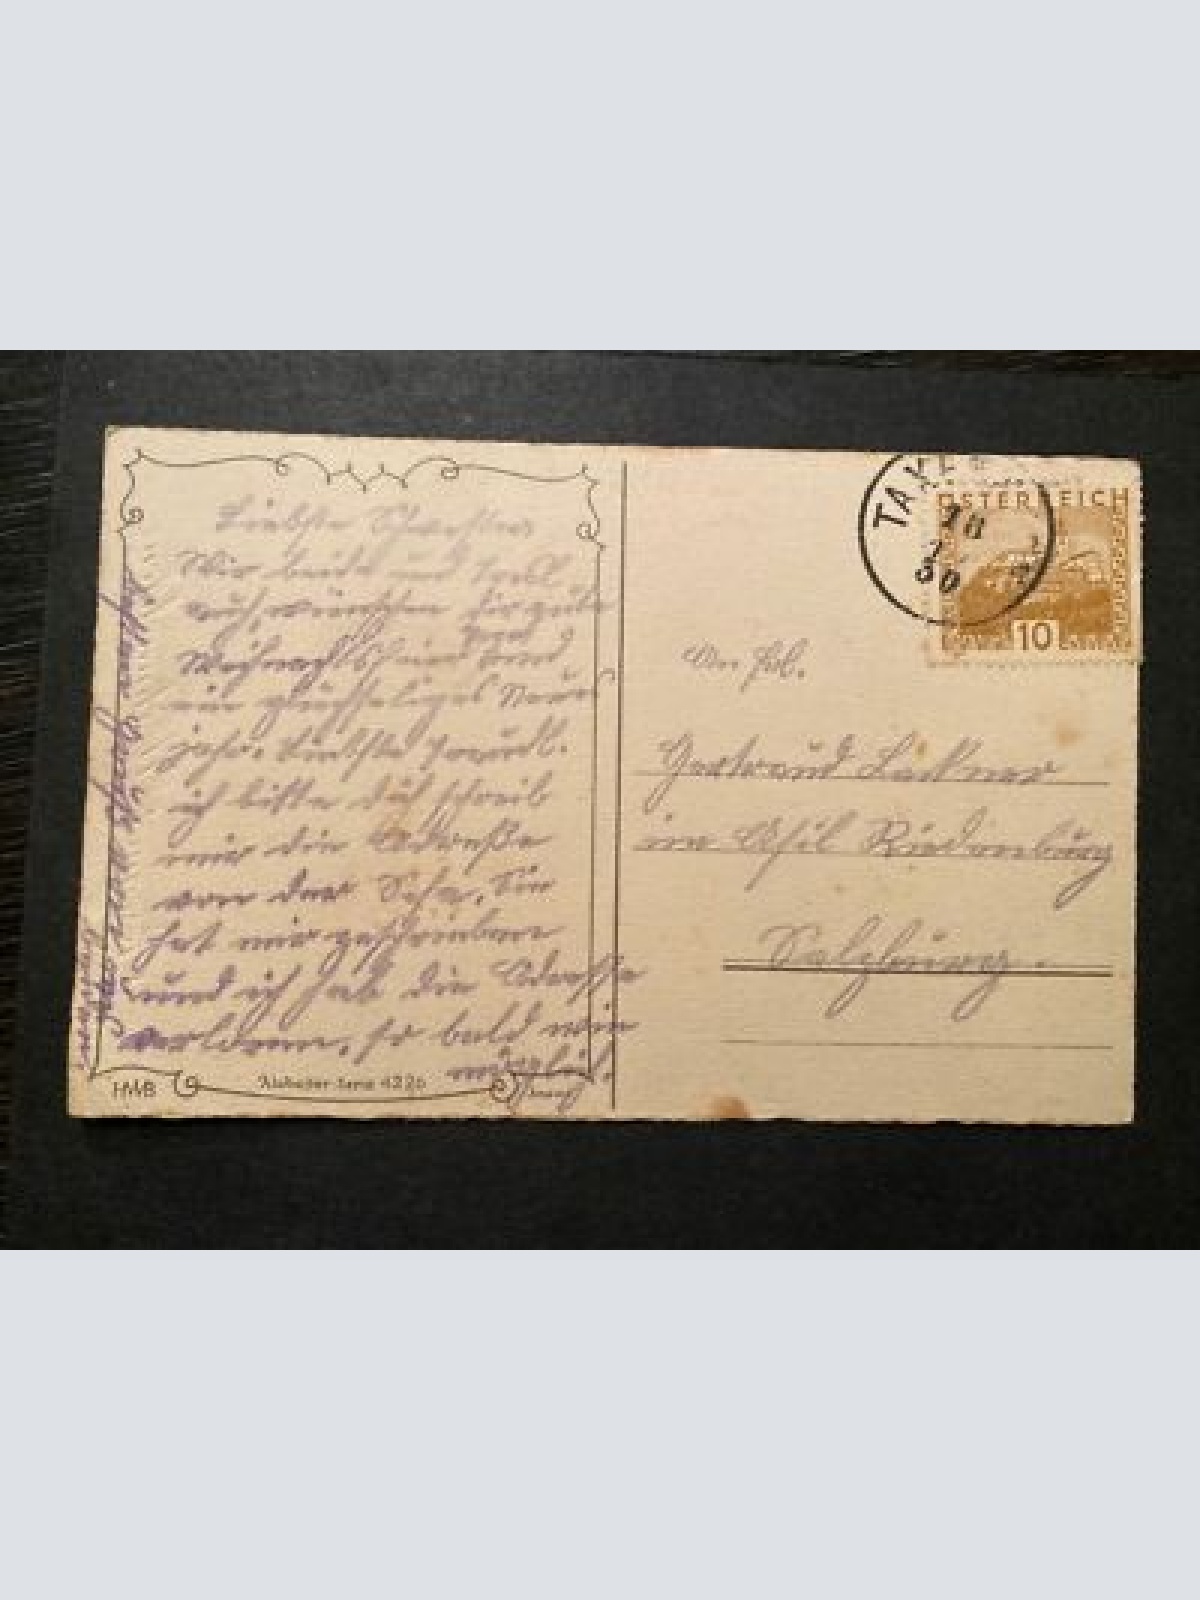 Liebste Schwester
Wir beide und
auch, wünschen dir gute
Weihnachts und
ein glückseliges Neu
jahr. Liebste Traudl.
ich bitte dich schreib
mir die Adreße
von der Sefa. Sie
hat mir geschrieben
und ich hab die Adreße
verloren, so bald wie
möglich.
HWB
Alabaster-Serie 4226
TAXE
18
30
ÖSTERREICH
10
An Frl.
Gertraud Lackner
im Asil Riedenburg
Salzburg.